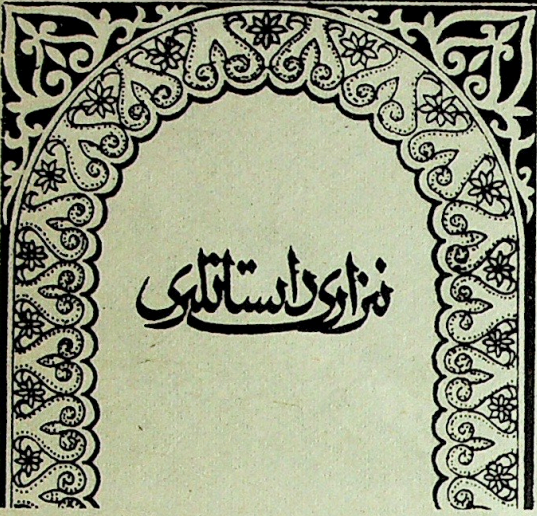 نزارى داستانلرى